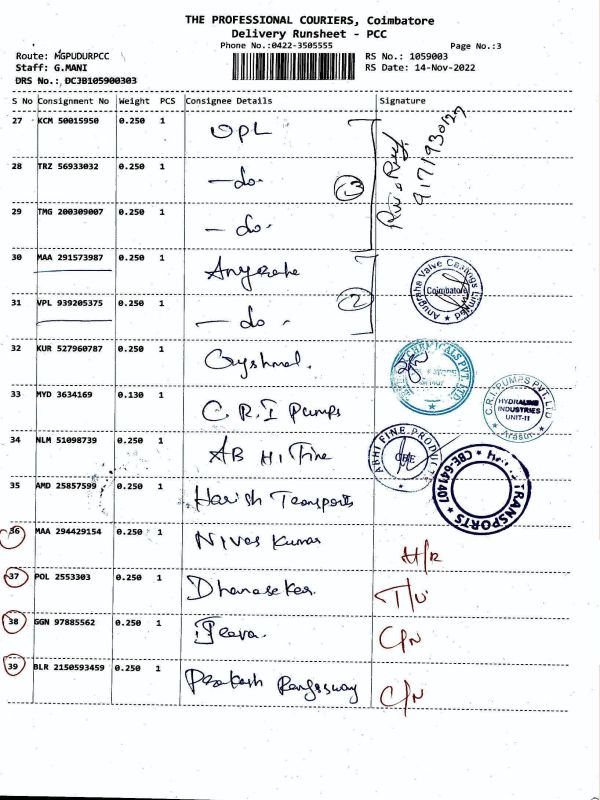 THE PROFESSIONAL COURIERS, Coimbatore
Delivery Runsheet - PCC
Phone No.:0422-3505555
Page No.:3
Route: MGPUDURPCC
RS No.: 1059003
Staff: G.MANI
RS Date: 14-Nov-2022
DRS No.: DCJB105900303
S No Consignment No Weight PCS Consignee Details Signature
27 KCM 50015950 0.250 1 UPL
28 TRZ 56933032 0.250 1 - do -
3
29 TMG 200309007 0.250 1 - do -
30 MAA 291573987 0.250 1
Anugraha Valve Castings Limited
Coimbatore
31 VPL 939205375 0.250 1 - do -
2
32 KUR 527960787 0.250 1
33 MYD 3634169 0.130 1 C.R.I Pumps
C.R.I. PUMPS PVT. LTD
HYDRAULINE
INDUSTRIES
UNIT-II
34 NLM 51098739 0.250 1 AB Hi Fine
ABHI FINE PRODUCT
CBE
35 AMD 25857599 0.250 1 Harish Transports
TRANSPORTS
CBE-641407
36 MAA 294429154 0.250 1 Nivas Kumar
37 POL 2553303 0.250 1 Dhanaseker
38 GGN 97885562 0.250 1 Jeeva.
C/N
39 BLR 2150593459 0.250 1 Prakash
C/N